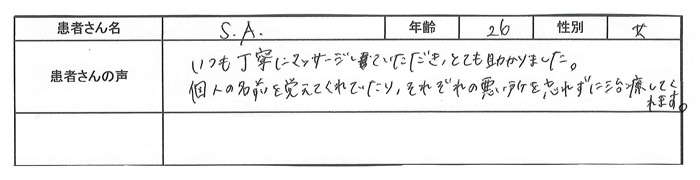 患者さん名 S.A. 年齢 26 性別 女
患者さんの声
いつも丁寧にマッサージしていただき、とても助かりました。
個人の名前を覚えてくれていたり、それぞれの悪い所を忘れずに治療してく
れます。